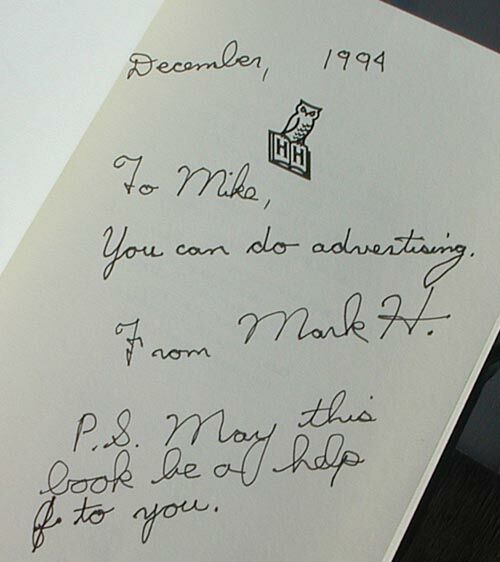 December, 1994
H H
To Mike,
You can do advertising.
From Mark H.
P.S. May this
book be of help
to you.